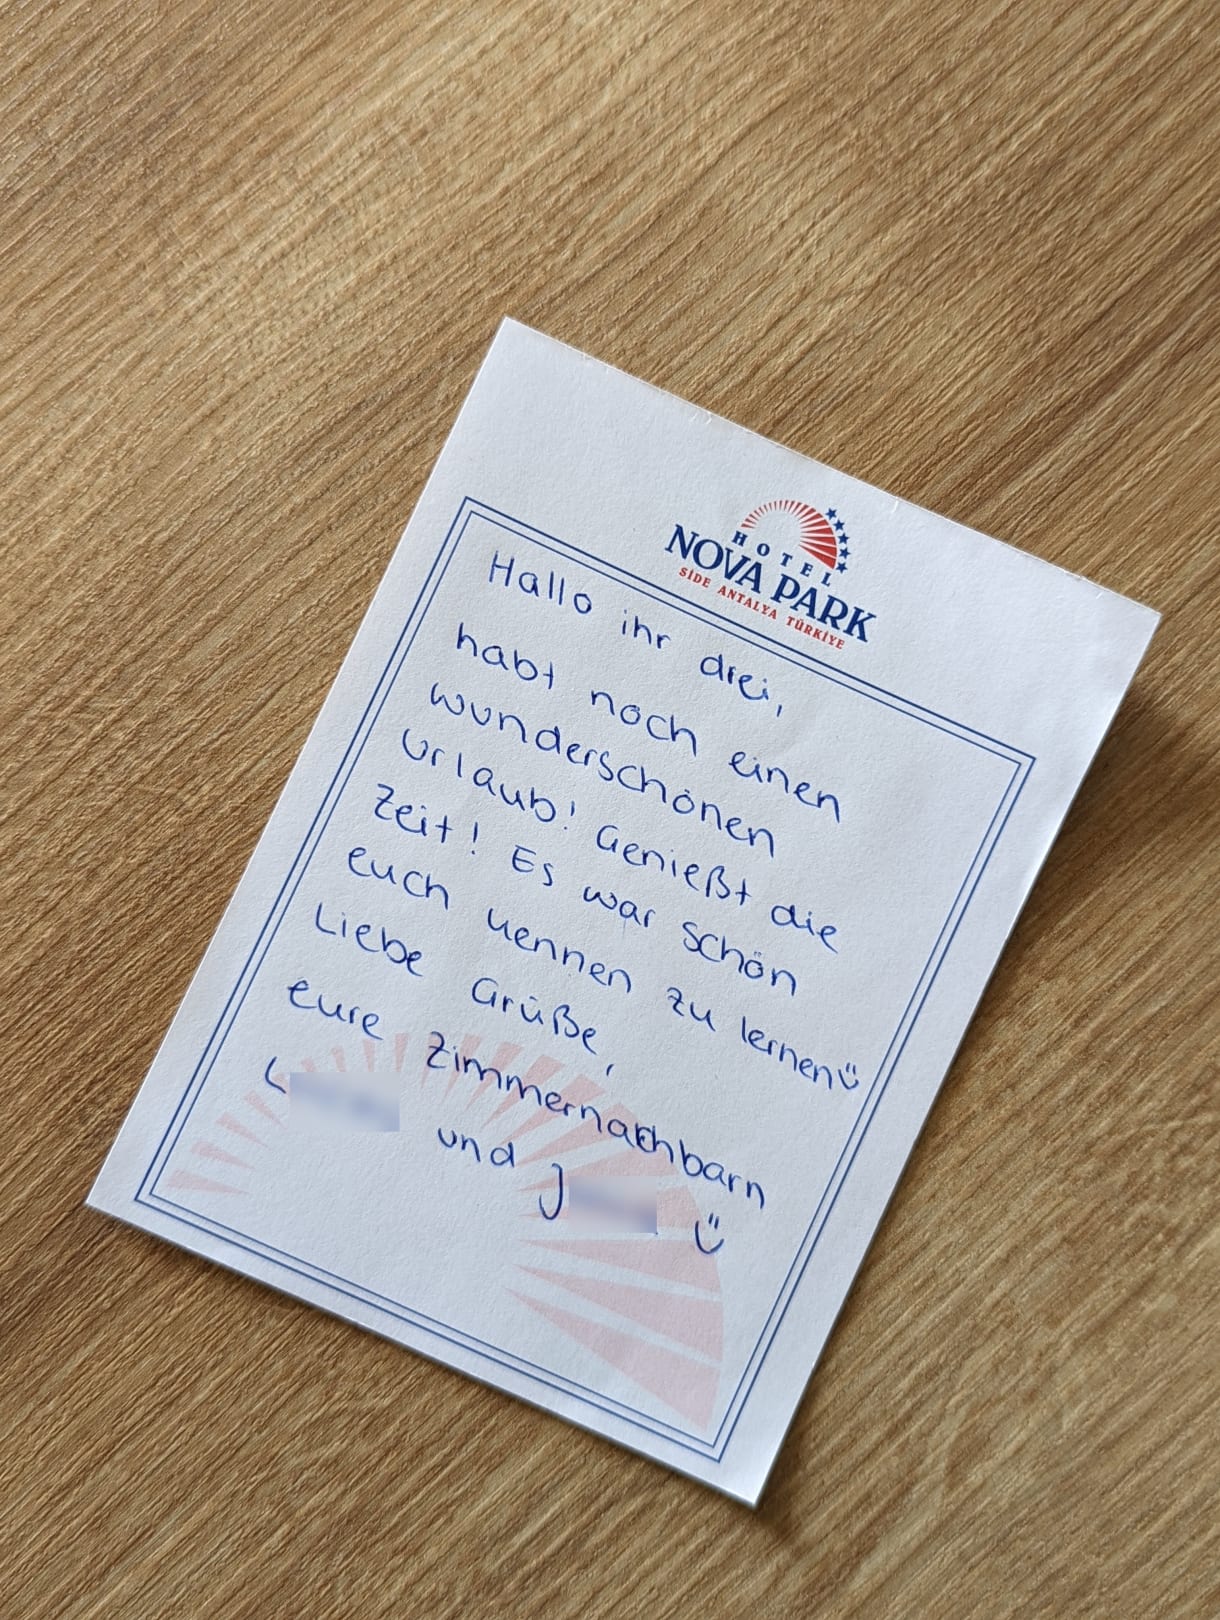 HOTEL
NOVA PARK
SİDE ANTALYA TÜRKİYE
Hallo ihr drei,
habt noch einen
wunderschönen
Urlaub! Genießt die
Zeit! Es war schön
euch kennen zu lernen
Liebe Grüße,
eure Zimmernachbarn
und